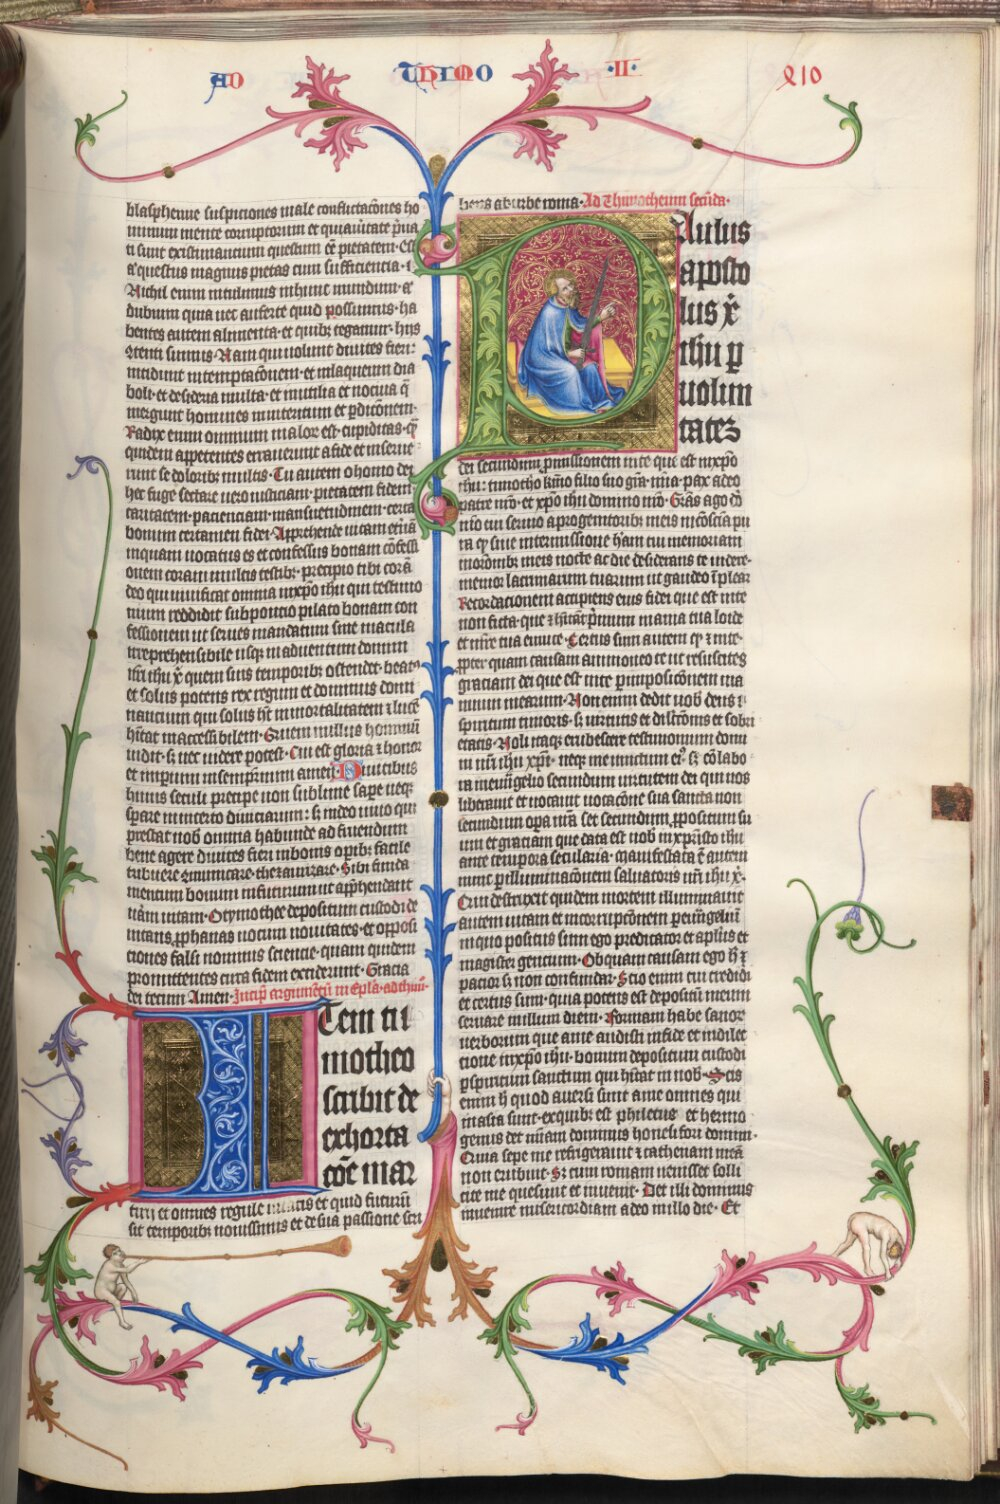 AD THIMO ·II· XIO
blasphemie suspiciones male conflictacōnes ho
minum mente corruptorum et qui aūitate p̄ua
ti sunt existimancium questum eē pietatem · Est
a questus magnus pietas cum sufficiencia ·
Nichil enim intulimus in hunc mundum ·
dubium quia nec auferre quid possumus · ha
bentes autem alimenta · et quibꝫ tegamur · hijs
9tenti simus · Nam qui uolunt diuites fieri ·
incidunt in temptacōnem · et in laqueum dia
boli · et desideria multa · et inutilia et nociua q̄
mergunt homines in interitum et pdicōnem ·
Radix enim omnium malor est cupiditas · q̄
quidem appetentes errauerunt a fide et inserue
runt se doloribꝫ multis · Tu autem o homo dei
hec fuge sectare uero iusticiam · pietatem fidem ·
caritatem · pacienciam · mansuetudinem · certa
bonum certamen fidei · Apprehende uitam et̄nā
in quam uocatus es et confessus bonam cōfessi
onem coram multis testibꝫ · precipio tibi corā
deo qui uiuificat omnia in xp̄o ihu qui testimo
nium reddidit sub poncio pilato bonam con
fessionem ut serues mandatum sine macula
irreprehensibile usqꝫ in aduentum domini
n̄ri ihu x̄ quem suis temporibꝫ ostendet · beatꝰ
et solus potens rex regum et dominus domi
nancium qui solus h̄t inmortalitatem ⁊ lucē
h̄itat inaccessibilem · Quem nullus hominū
uidit · sꝫ nec uidere potest · Cui est gloria ⁊ honor
et imperium in sempit̄num amen · Diuitibus
huius seculi precipe non sublime sape neqꝫ
sperare in incerto diuiciarum : sꝫ in deo uiuo qui
prestat nob̄ omnia habunde ad fruendum
bene agere diuites fieri in bonis opibꝫ facile
tribuere 9municare · thezaurizare · Sibi funda
mentum bonum in futurum ut app̄hendant
uitā uitam · O tymothee depositum custodi de
uitans ꝓphanas uocum nouitates · et opposi
ciones falsi nominis sciencie · quam quidem
promittentes circa fidem exciderunt · Gracia
dei tecum Amen · Incip̄ argumētū in Epl̄a · ad thim̄ ·
Item tii
motheo
scribit de
exhorta
cōe mar
tirij et omnes regule ueritatis et quid futurū
sit temporibꝫ nouissimis et de sua passione scri
bens ab urbe roma · Ad Thimotheum secūda ·
Paulus
aposto
lus x̄
ihu p
uolun
tateꝫ
dei secundum ꝓmissionem uite que est in xp̄o
ihu : timotho kr̄mo filio suo gr̄a · m̄ia · pax a deo
patre n̄ro · et xp̄o ihu domino n̄ro · Gr̄as ago dō
m̄eo cui seruo a progenitoribꝫ meis in cōscīa pu
ra qꝫ sine intermissione h̄am tui memoriam
in or̄onibꝫ meis nocte ac die desiderans te uidere ·
memor lacrimarum tuarum ut gaudeo īplear
Recordacionem accipiens eius fidei que est in te
non ficta · que ⁊ h̄itāt pri̅mum in auia tua loide
et m̄re tua eunice · Certus sum autem qꝫ ⁊ in te ·
ꝓpter quam causam ammoneo te ut resuscites
graciam dei que est in te p inposicōnem ma
nuum mearum · Non enim dedit nob̄ deus
spiritum timoris · sꝫ uirtutis et dilc̄ōnis et sobri
etatis · Noli itaqꝫ erubescere testimonium domi
ni n̄ri ihu xp̄i · neqꝫ me uinctum eiꝰ sꝫ cōlabo
ra in euāgelio secundum uirtutem dei qui nos
liberauit et uocauit uocacōne sua sancta non
secundum opa n̄ra set secundum ꝓpositum su
um et graciam que data est nob̄ in xp̄isto ihu
ante tempora secularia · manifestata ē autem
nunc p illuminacōnem saluatoris n̄ri ihu x̄ ·
Qui destruxit quidem mortem illuminauit
autem uitam et incorrupcōnem p euāgeliū
in quo positus sum ego predicator et apl̄us et
magister gencium · Ob quam causam ego h̄ ⁊
pacior sꝫ non confundar · Scio enim cui credidi
et certus sum · quia potens est depositū meum
seruare in illum diem · Formam habe sanor
uerborum que a me audisti in fide et in dilec
cione in xp̄o ihu · bonum depositum custodi
p sp̄iritum sanctum qui h̄itat in nob̄ · Scis
enim h̄ quod auersi sunt a me omnes qui
in asia sunt · ex quibꝫ est philetus et hermo
genus det m̄iam dominus honesifori domui ·
Quia sepe me refrigerauit ⁊ cathenam meā
non erubuit · Sꝫ cum romam uenisset solli
cite me quesiuit et inuenit · Det illi dominus
inuenire misericordiam a deo in illo die · Et